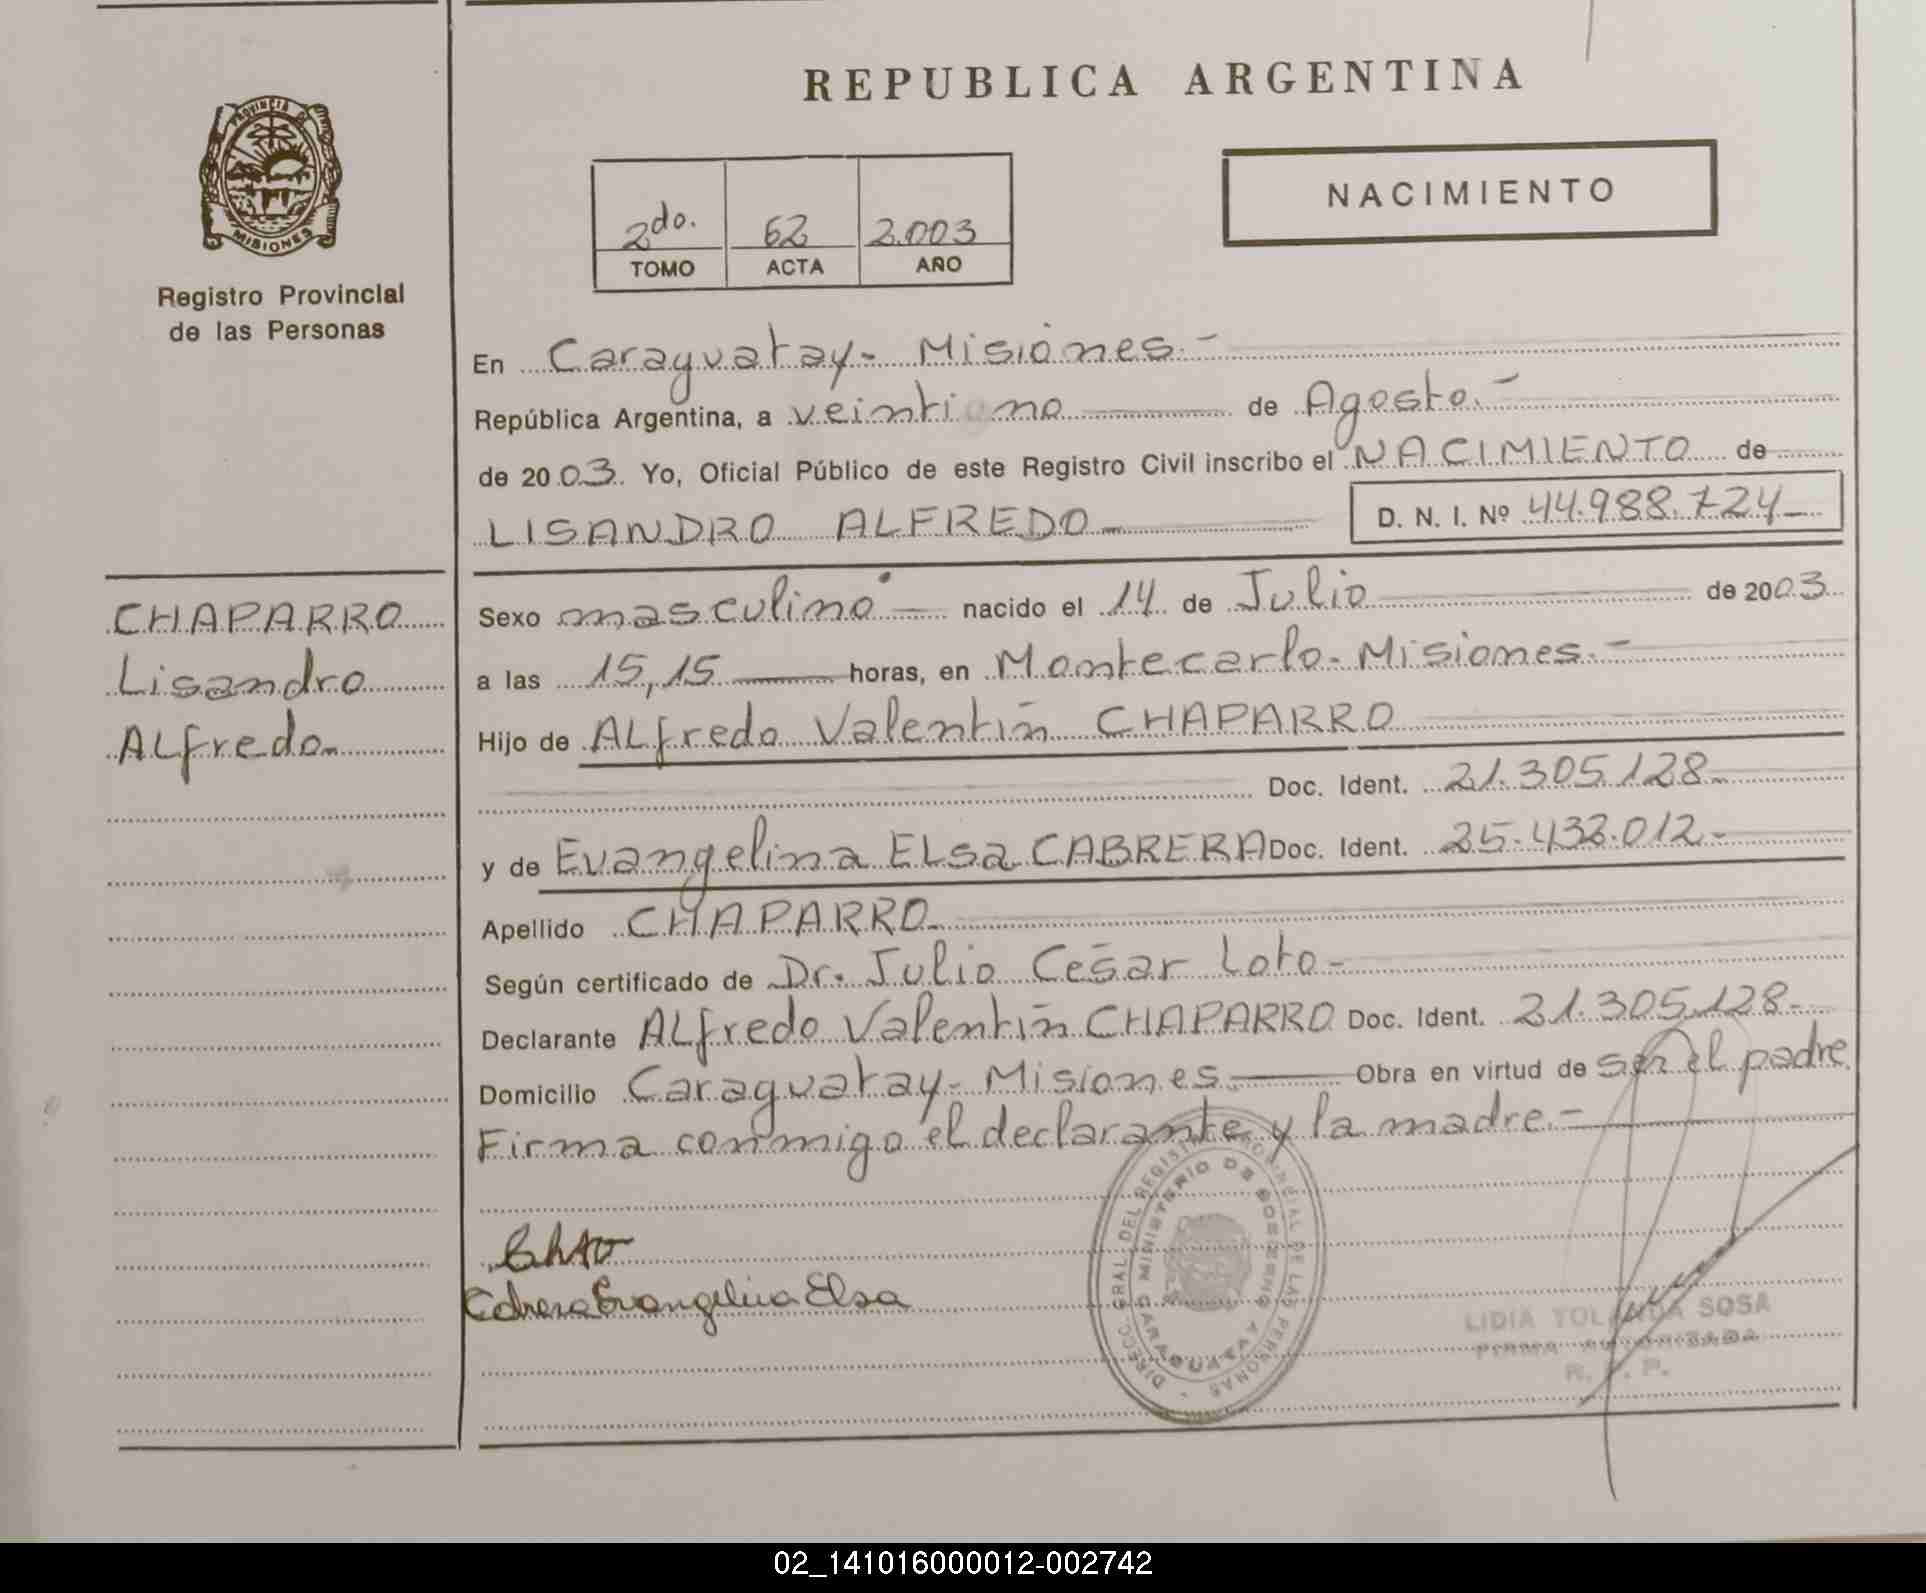 REPUBLICA ARGENTINA
PROVINCIA DE
MISIONES
Registro Provincial
de las Personas
2do. 62 2.003
TOMO ACTA AÑO
NACIMIENTO
En Caraguatay- Misiones.-
República Argentina, a veinti no de Agosto.-
de 2003. Yo, Oficial Público de este Registro Civil inscribo el NACIMIENTO de
LISANDRO ALFREDO- D. N. I. Nº 44.988.724-
CHAPARRO
Lisandro
Alfredo-
Sexo masculino nacido el 14 de Julio de 2003
a las 15,15 horas, en Montecarlo- Misiones.-
Hijo de Alfredo Valentín CHAPARRO
Doc. Ident. 21.305.128-
y de Evangelina Elsa CABRERA Doc. Ident. 25.432.012-
Apellido CHAPARRO-
Según certificado de Dr. Julio César Loto-
Declarante Alfredo Valentín CHAPARRO Doc. Ident. 21.305.128-
Domicilio Caraguatay- Misiones Obra en virtud de ser el padre
Firma conmigo el declarante y la madre.-
Evangelina Elsa
DIREC. GRAL DEL REGISTRO PROVINCIAL DE LAS PERSONAS
MINISTERIO DE GOBIERNO
CARAGUATAY
LIDIA YOLANDA SOSA
FIRMA AUTORIZADA
R. P. P.
02_141016000012-002742